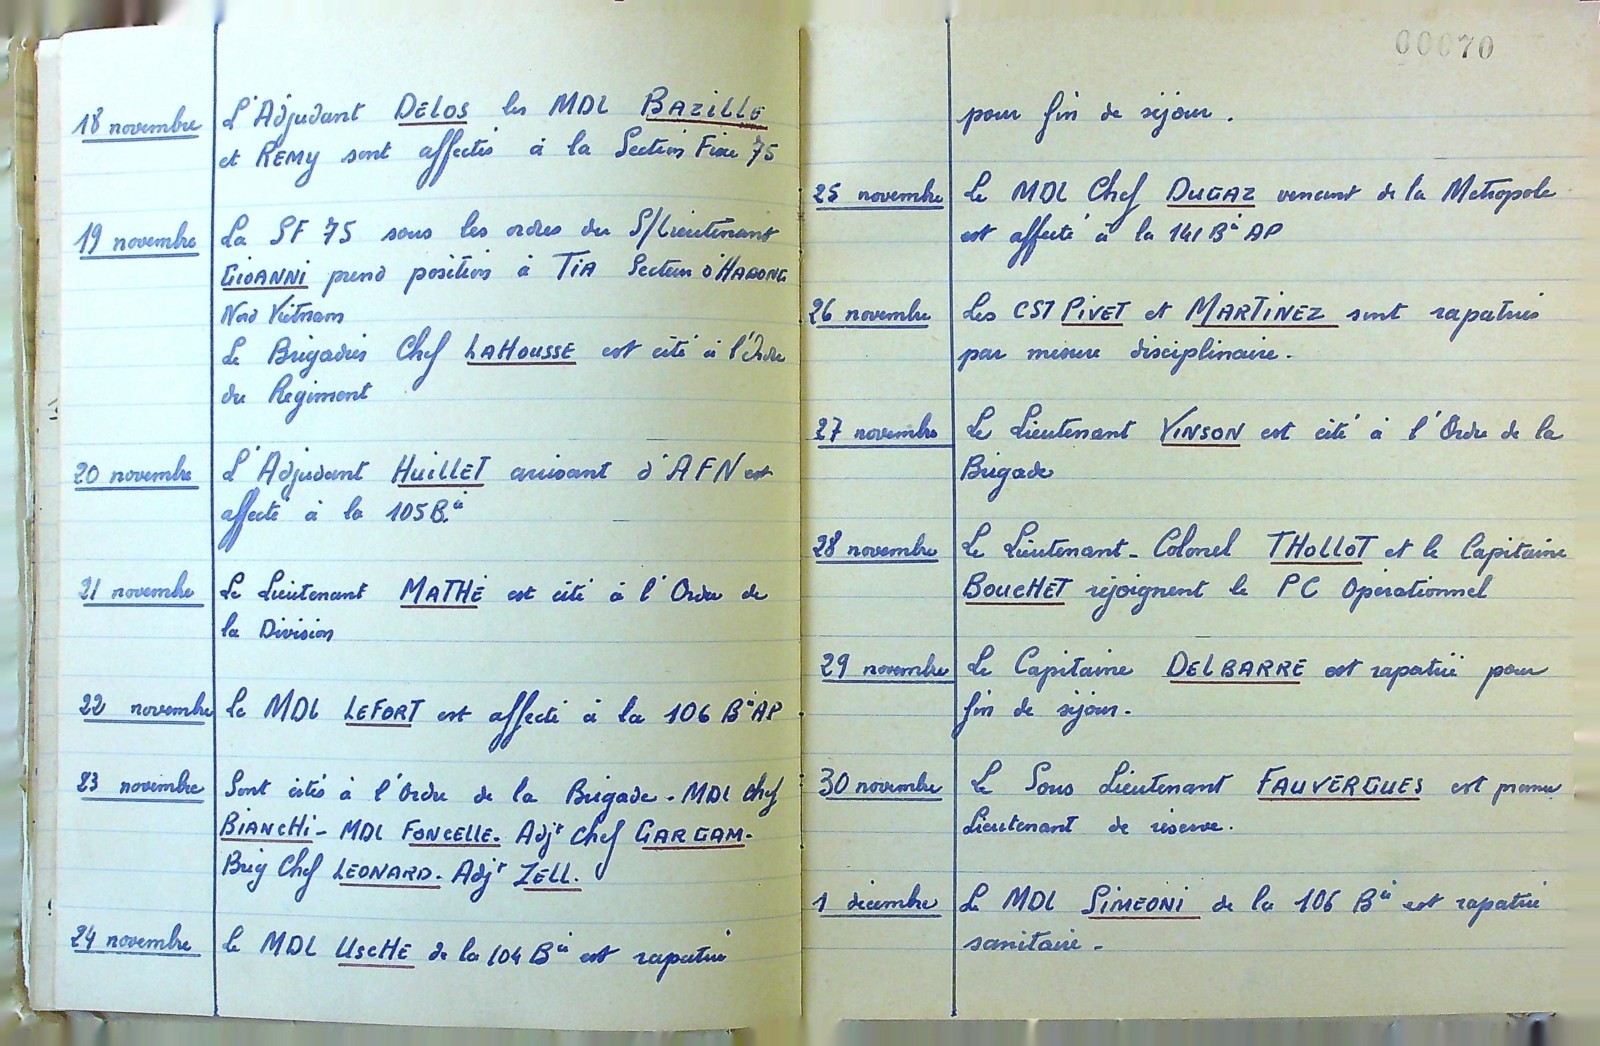 18 novembre L'Adjudant DELOS les MDL BAZILLE
et REMY sont affectés à la Section Fixe 75
19 novembre La SF 75 sous les ordres du S/Lieutenant
GIOANNI prend position à TIA Secteur d'HADONG
Nord Vietnam
Le Brigadier Chef LAHOUSSE est cité à l'Ordre
du Regiment
20 novembre L'Adjudant HUILLET arrivant d'AFN est
affecté à la 105 Bie
21 novembre Le Lieutenant MATHÉ est cité à l'Ordre de
la Division
22 novembre Le MDL LEFORT est affecté à la 106 Bie AP
23 novembre Sont cités à l'Ordre de la Brigade - MDL Chef
BIANCHI - MDL FONCELLE. Adjt Chef GARGAM.
Brig Chef LEONARD. Adjt ZELL.
24 novembre Le MDL USCHE de la 104 Bie est rapatrié
00070
pour fin de séjour.
25 novembre Le MDL Chef DUGAZ venant de la Metropole
est affecté à la 141 Bie AP
26 novembre Les CST PIVET et MARTINEZ sont rapatriés
par mesure disciplinaire.
27 novembre Le Lieutenant VINSON est cité à l'Ordre de la
Brigade
28 novembre Le Lieutenant-Colonel THOLLOT et le Capitaine
BOUCHET rejoignent le PC Opérationnel
29 novembre Le Capitaine DELBARRE est rapatrié pour
fin de séjour.
30 novembre Le Sous Lieutenant FAUVERGUES est promu
Lieutenant de réserve.
1 décembre Le MDL SIMEONI de la 106 Bie est rapatrié
sanitaire.